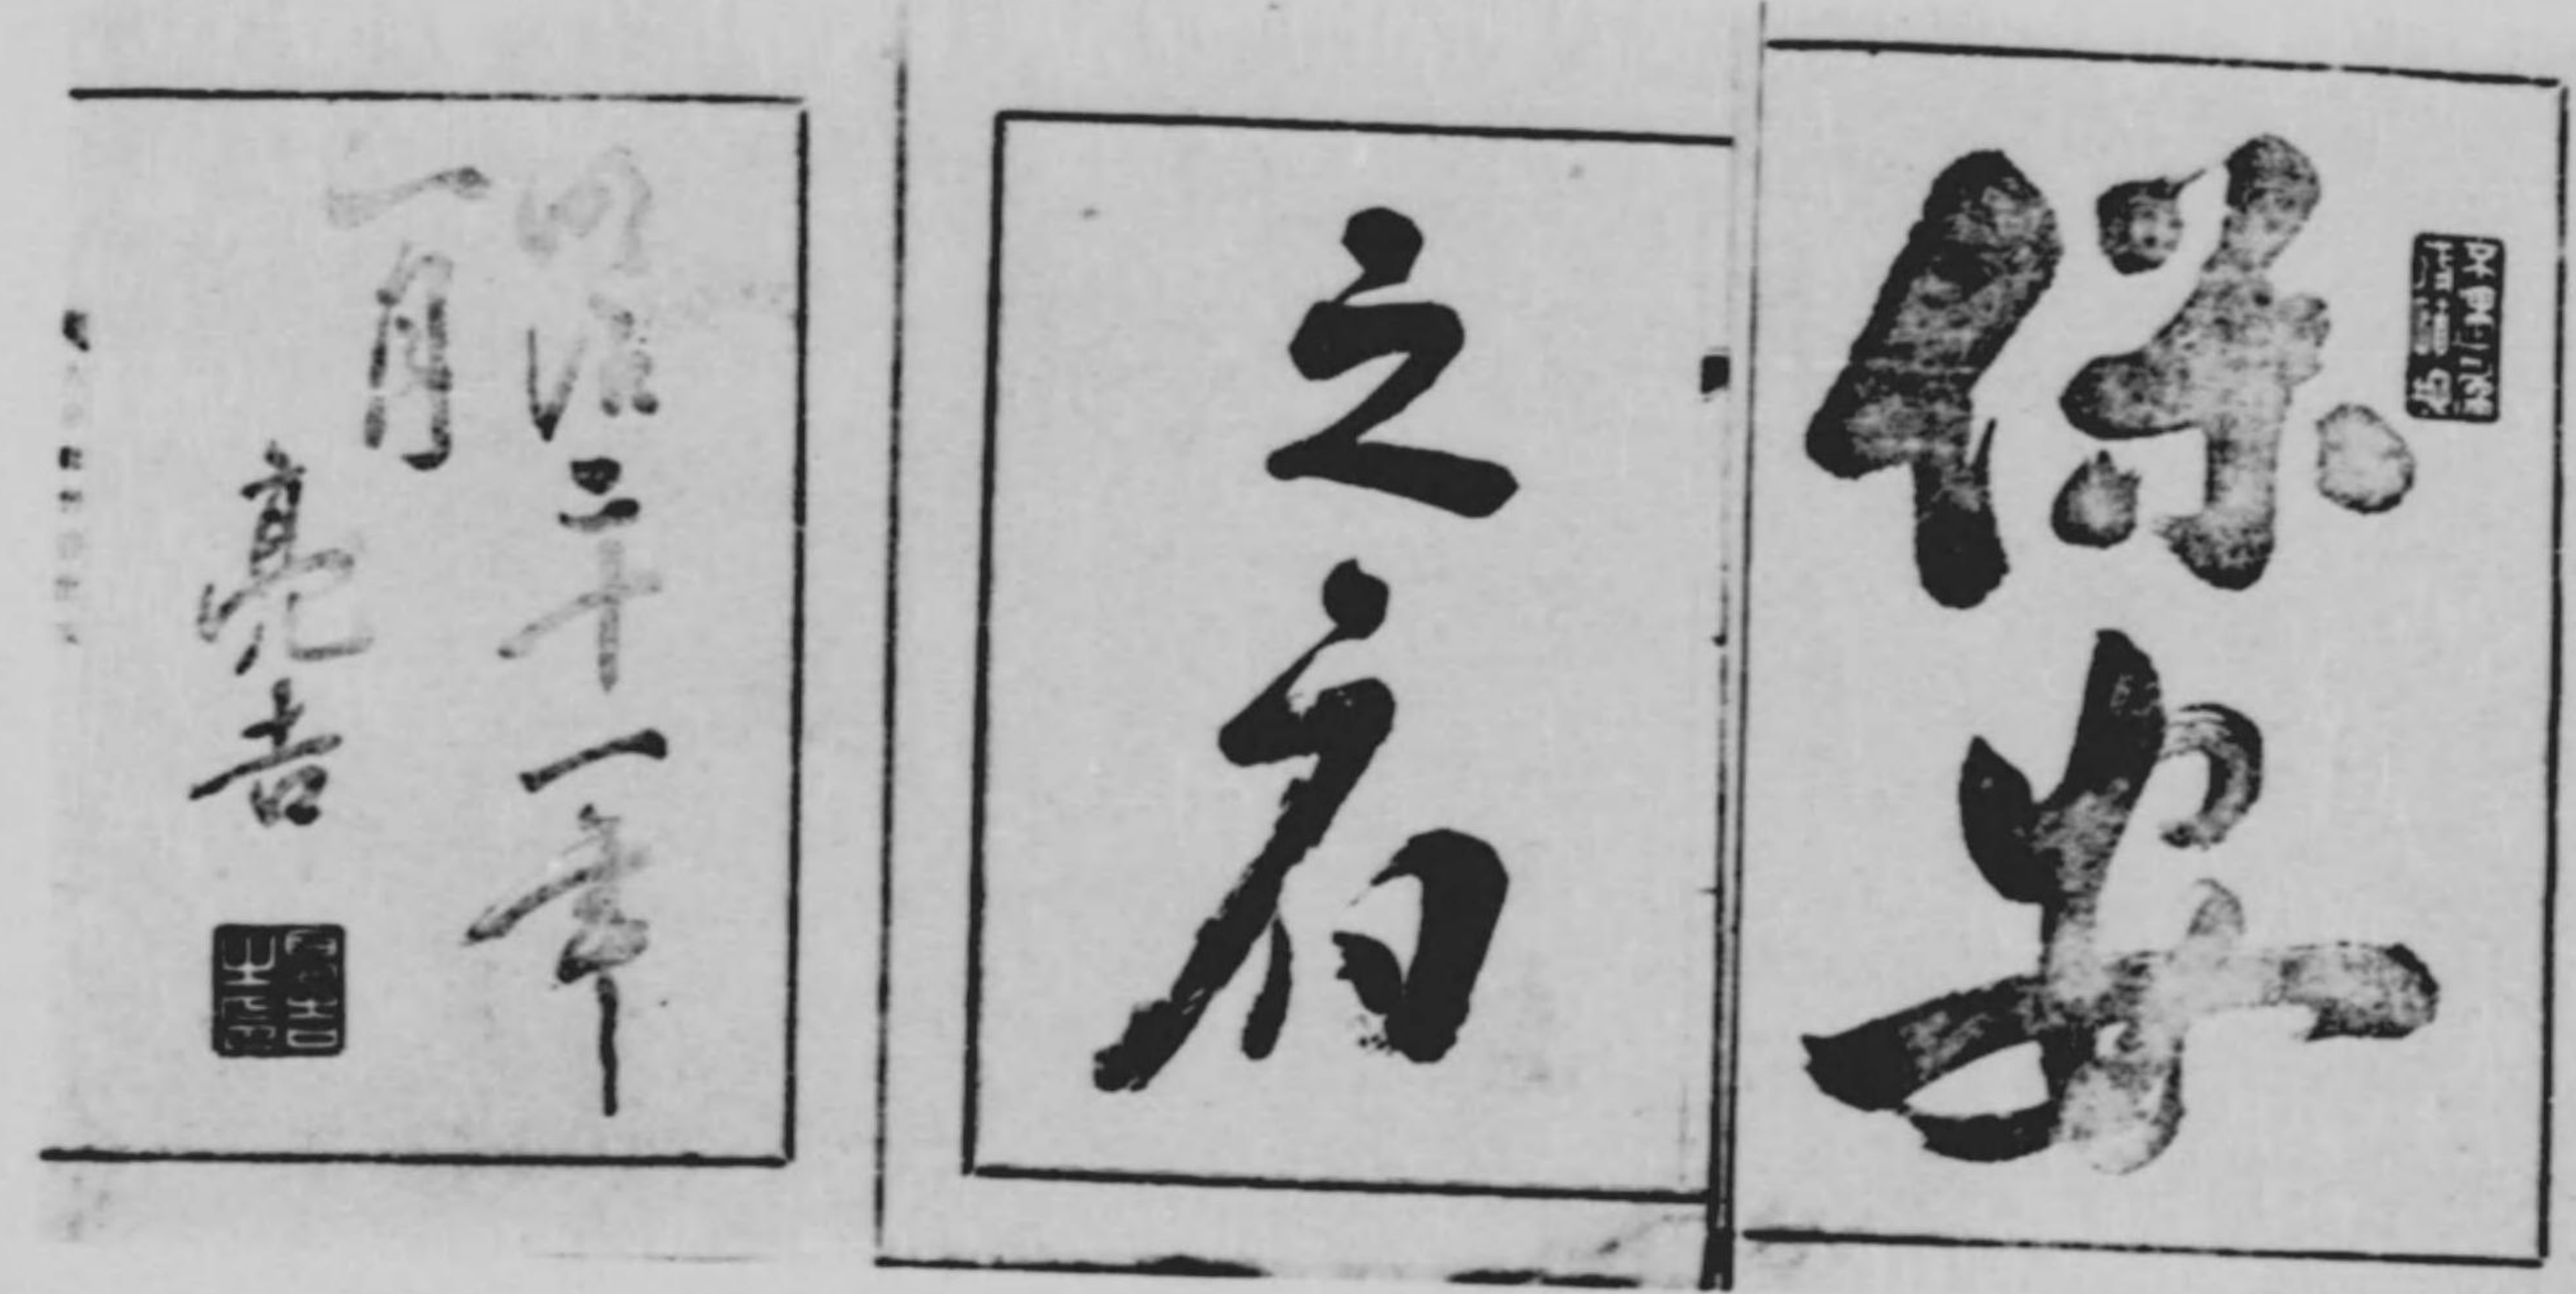 保安
之府
明治二十一年
一月
亮吉